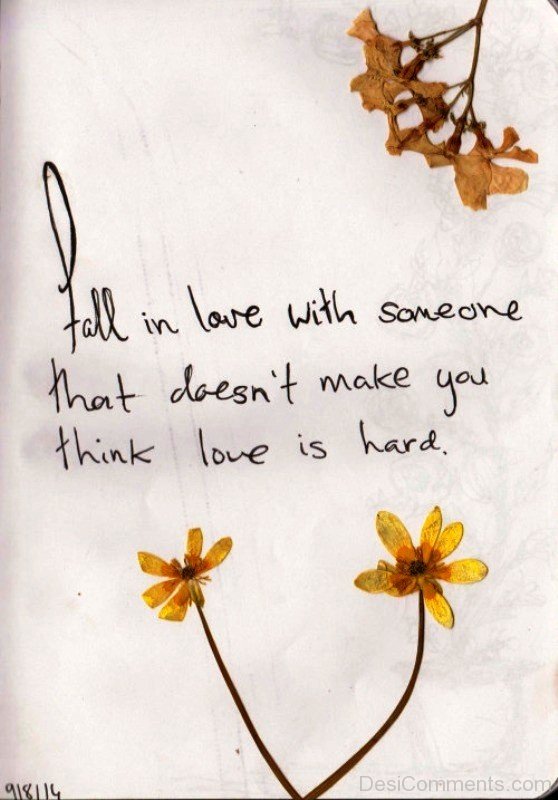 fall in love with someone
that doesn't make you
think love is hard.
9/8/14
DesiComments.com